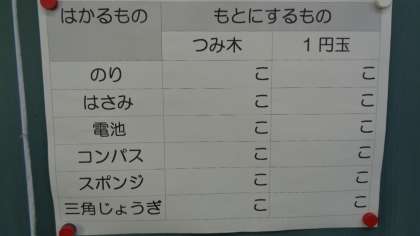 はかるもの もとにするもの
つみ木 1円玉
のり こ こ
はさみ こ こ
電池 こ こ
コンパス こ こ
スポンジ こ こ
三角じょうぎ こ こ